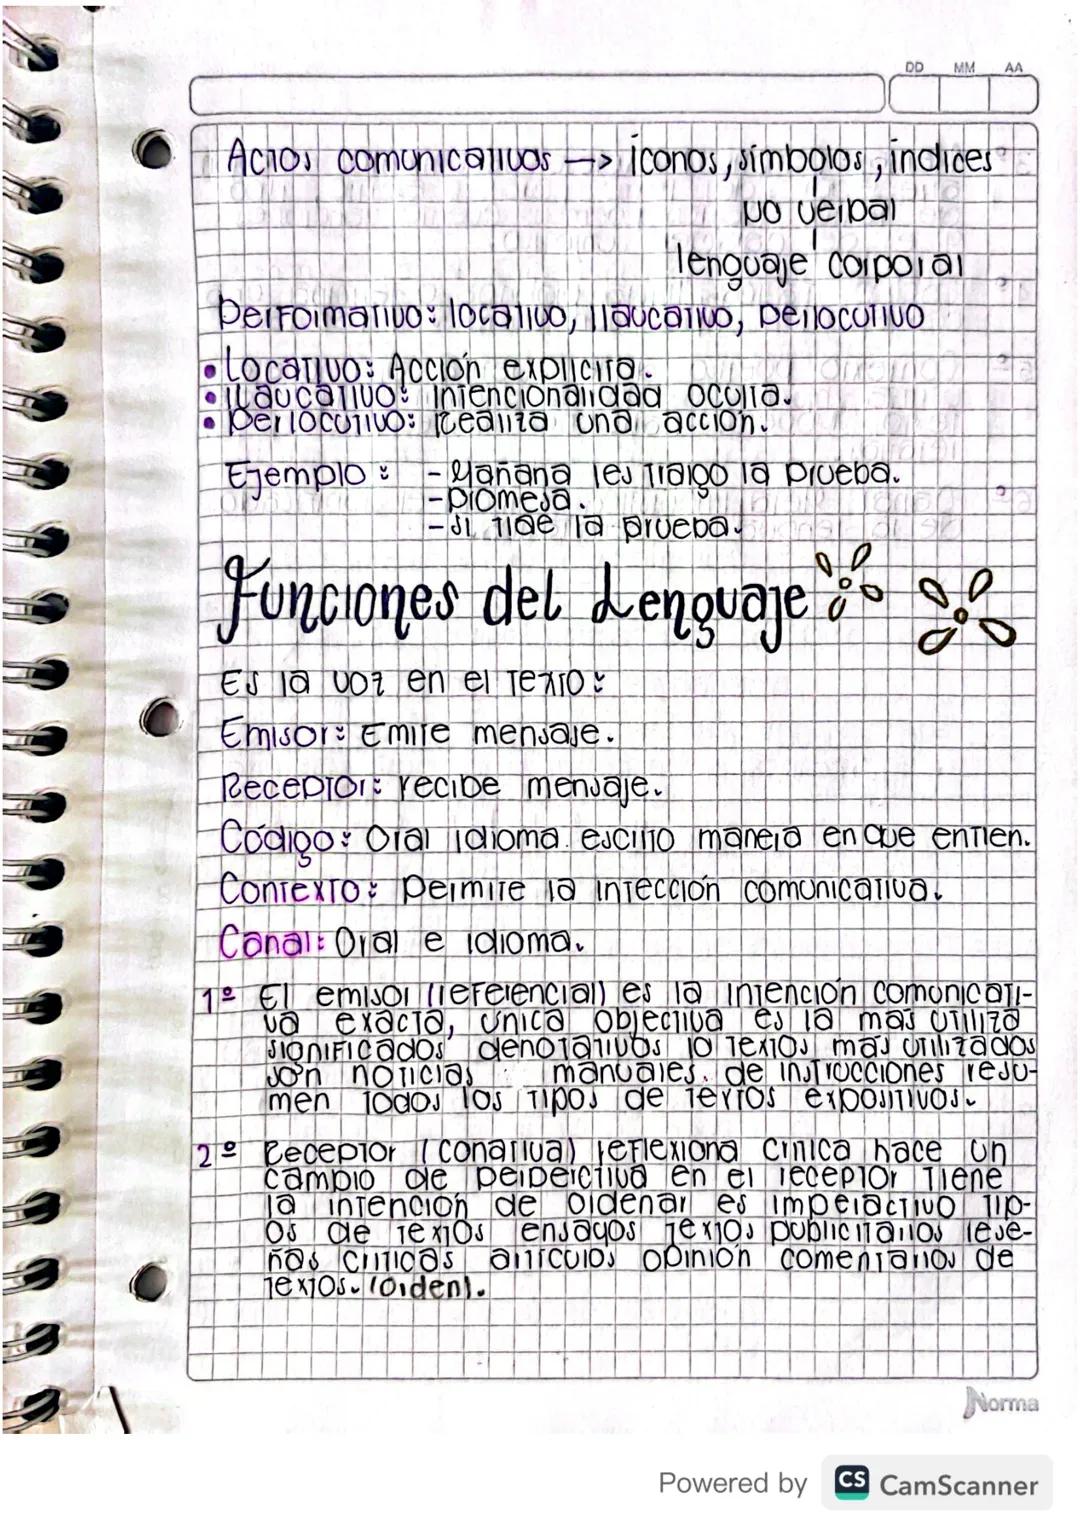 DD MM AA
Actos comunicativos --> iconos, símbolos, índices
no verbal
lenguaje corporal
Performativo: locativo, Ilaucativo, perlocutivo
• Locativo: Acción explicita.
• Ilaucativo: Intencionalidad oculta.
• perlocutivo: Realiza una acción.
Ejemplo: - Mañana les traigo la prueba.
- promesa.
- si trae la prueba.
Funciones del Lenguaje
Es la voz en el texto:
Emisor: Emite mensaje.
Receptor: recibe mensaje.
Código: Oral idioma escrito manera en que entien.
Contexto: permite la intección comunicativa.
Canal: Oral e idioma.
1º El emisor (referencial) es la intención comunicati-
va exacta, única objectiva es la mas utiliza
significados denotativos lo textos mas utilizados
son noticias manuales. de instrucciones resu-
men todos los tipos de textos expositivos.
2º Receptor (conativa) reflexiona critica hace un
cambio de perperctiva en el receptor tiene
la intención de ordenar es imperactivo tip-
os de textos ensayos textos publicitarios rese-
ñas criticas articulos opinión comentarios de
textos. (orden).
Norma
Powered by CS CamScanner